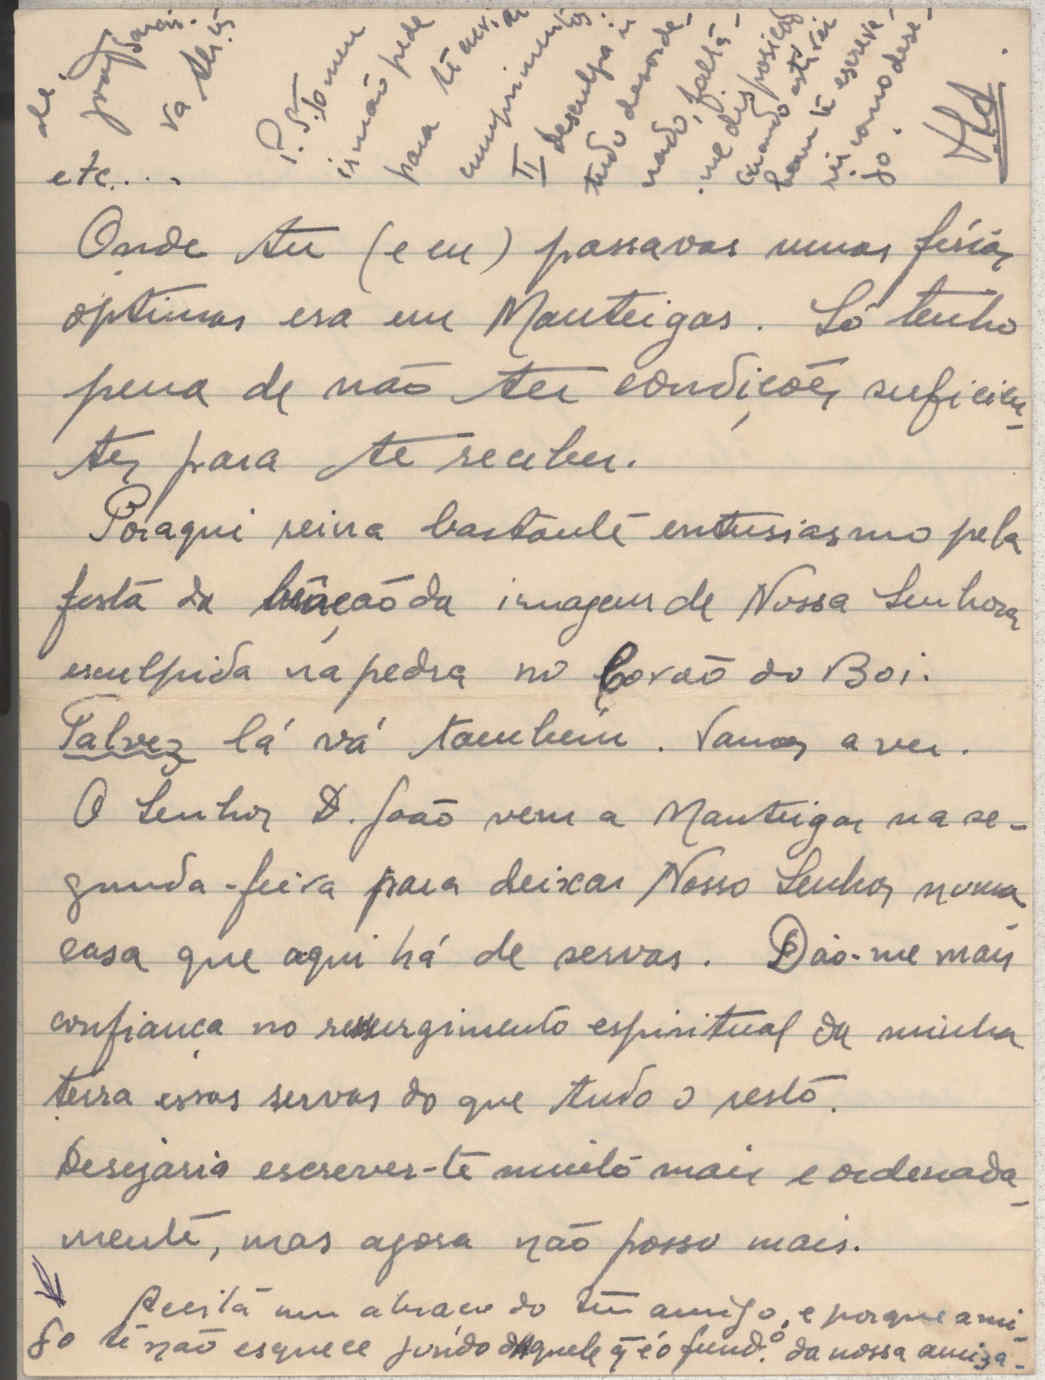 etc....
Onde tu (e eu) passavas umas férias
óptimas era em Manteigas. Só tenho
pena de não ter condições suficien-
tes para te receber.
Por aqui reina bastante entusiasmo pela
festa da bênção da imagem de Nossa Senhora
esculpida na pedra no Covão do Boi.
Talvez lá vá também. Vamos a ver.
O Senhor D. João vem a Manteigas na se-
gunda-feira para deixar Nosso Senhor numa
casa que aqui há de servas. Dão-me mais
confiança no ressurgimento espiritual da minha
terra essas servas do que tudo o resto.
Desejaria escrever-te muito mais e ordenada-
mente, mas agora não posso mais.
Aceita um abraço do teu amigo, e porque ami-
go te não esquece junto daquele q̄ é o fund.º da nossa amiza-
de.
P.S. Io meu
irmão pede
para te enviar
cumprimentos.
II desculpa ir
tudo desorde-
nado, falta-
me disposição
quando estiver
bom te escreve-
rei como dese-
jo.